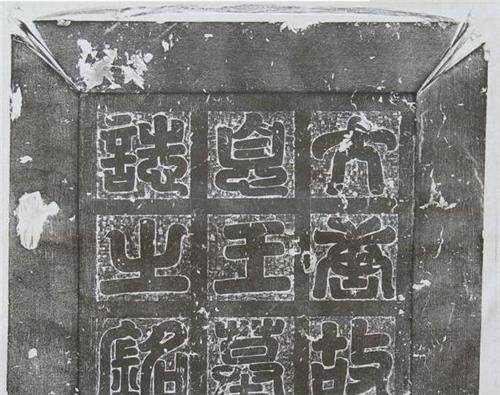 大唐故
息王墓
誌之銘